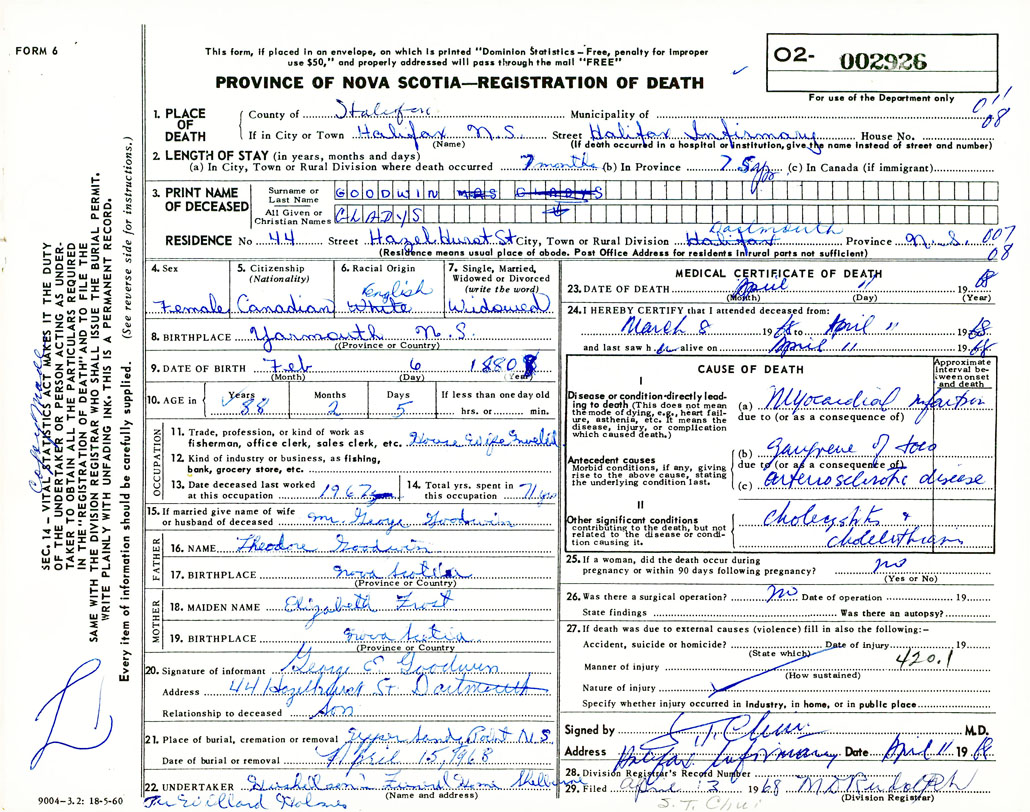 FORM 6
This form, if placed in an envelope, on which is printed "Dominion Statistics – Free, penalty for improper
use $50," and properly addressed will pass through the mail "FREE"
O2- 002926
For use of the Department only
PROVINCE OF NOVA SCOTIA—REGISTRATION OF DEATH
08
1. PLACE OF DEATH
County of Halifax Municipality of
If in City or Town Halifax N.S. Street Halifax Infirmary House No.
(Name) (If death occurred in a hospital or institution, give the name instead of street and number)
2. LENGTH OF STAY (in years, months and days)
(a) In City, Town or Rural Division where death occurred 7 months (b) In Province (c) In Canada (if immigrant)
3. PRINT NAME OF DECEASED
Surname or Last Name GOODWIN MRS GLADYS
All Given or Christian Names GLADYS
Dartmouth
RESIDENCE No 44 Street Hazelhurst St City, Town or Rural Division Halifax Province N.S. 007
(Residence means usual place of abode. Post Office Address for residents in rural parts not sufficient) 08
4. Sex
Female
5. Citizenship (Nationality)
Canadian
6. Racial Origin
English
White
7. Single, Married, Widowed or Divorced (write the word)
Widowed
8. BIRTHPLACE Yarmouth N.S
(Province or Country)
9. DATE OF BIRTH Feb 6 1880
(Month) (Day) (Year)
10. AGE in Years 88 Months 2 Days 5 If less than one day old hrs. or min.
OCCUPATION
11. Trade, profession, or kind of work as
fisherman, office clerk, sales clerk, etc. House Wife
12. Kind of industry or business, as fishing,
bank, grocery store, etc.
13. Date deceased last worked
at this occupation 1967
14. Total yrs. spent in
this occupation 71 yrs
15. If married give name of wife
or husband of deceased Mr. George Goodwin
FATHER
16. NAME Theodore Goodwin
17. BIRTHPLACE Nova Scotia
(Province or Country)
MOTHER
18. MAIDEN NAME Elizabeth Frost
19. BIRTHPLACE Nova Scotia
(Province or Country)
20. Signature of informant George E Goodwin
Address 44 Hazelhurst St Dartmouth
Relationship to deceased Son
21. Place of burial, cremation or removal Upper Sandy Point N.S.
Date of burial or removal April 15, 1968
22. UNDERTAKER Funeral Home Shelburne
(Name and address)
9004-3.2: 18-5-60 Per Willard Holmes
MEDICAL CERTIFICATE OF DEATH
23. DATE OF DEATH April 11 1968
(Month) (Day) (Year)
24. I HEREBY CERTIFY that I attended deceased from:
March 8 1968 to April 11 1968
and last saw her alive on April 11 1968
CAUSE OF DEATH
Approximate interval between onset and death
I
Disease or condition directly leading to death (This does not mean the mode of dying, e.g., heart failure, asthenia, etc. It means the disease, injury, or complication which caused death.)
(a) Myocardial infarction
due to (or as a consequence of)
Antecedent causes
Morbid conditions, if any, giving rise to the above cause, stating the underlying condition last.
(b) Gangrene of toes
due to (or as a consequence of)
(c) arteriosclerotic disease
II
Other significant conditions contributing to the death, but not related to the disease or condition causing it.
cholecystitis &
cholelithiasis
25. If a woman, did the death occur during
pregnancy or within 90 days following pregnancy? no
(Yes or No)
26. Was there a surgical operation? no Date of operation 19
State findings Was there an autopsy?
27. If death was due to external causes (violence) fill in also the following:–
Accident, suicide or homicide? Date of injury 19
(State which)
Manner of injury 420.1
(How sustained)
Nature of injury
Specify whether injury occurred in industry, in home, or in public place
Signed by S.T. Chui M.D.
Address Halifax Infirmary Date April 11 1968
28. Division Registrar's Record Number
29. Filed April 13 1968 M D Rudolph
(Division Registrar)
S. T. Chui
SEC. 14 – VITAL STATISTICS ACT MAKES IT THE DUTY
OF THE UNDERTAKER OR PERSON ACTING AS UNDER-
TAKER TO OBTAIN ALL THE PARTICULARS REQUIRED
IN THE "REGISTRATION OF DEATH" AND TO FILE THE
SAME WITH THE DIVISION REGISTRAR WHO SHALL ISSUE THE BURIAL PERMIT.
WRITE PLAINLY WITH UNFADING INK. THIS IS A PERMANENT RECORD.
Every item of information should be carefully supplied. (See reverse side for instructions.)